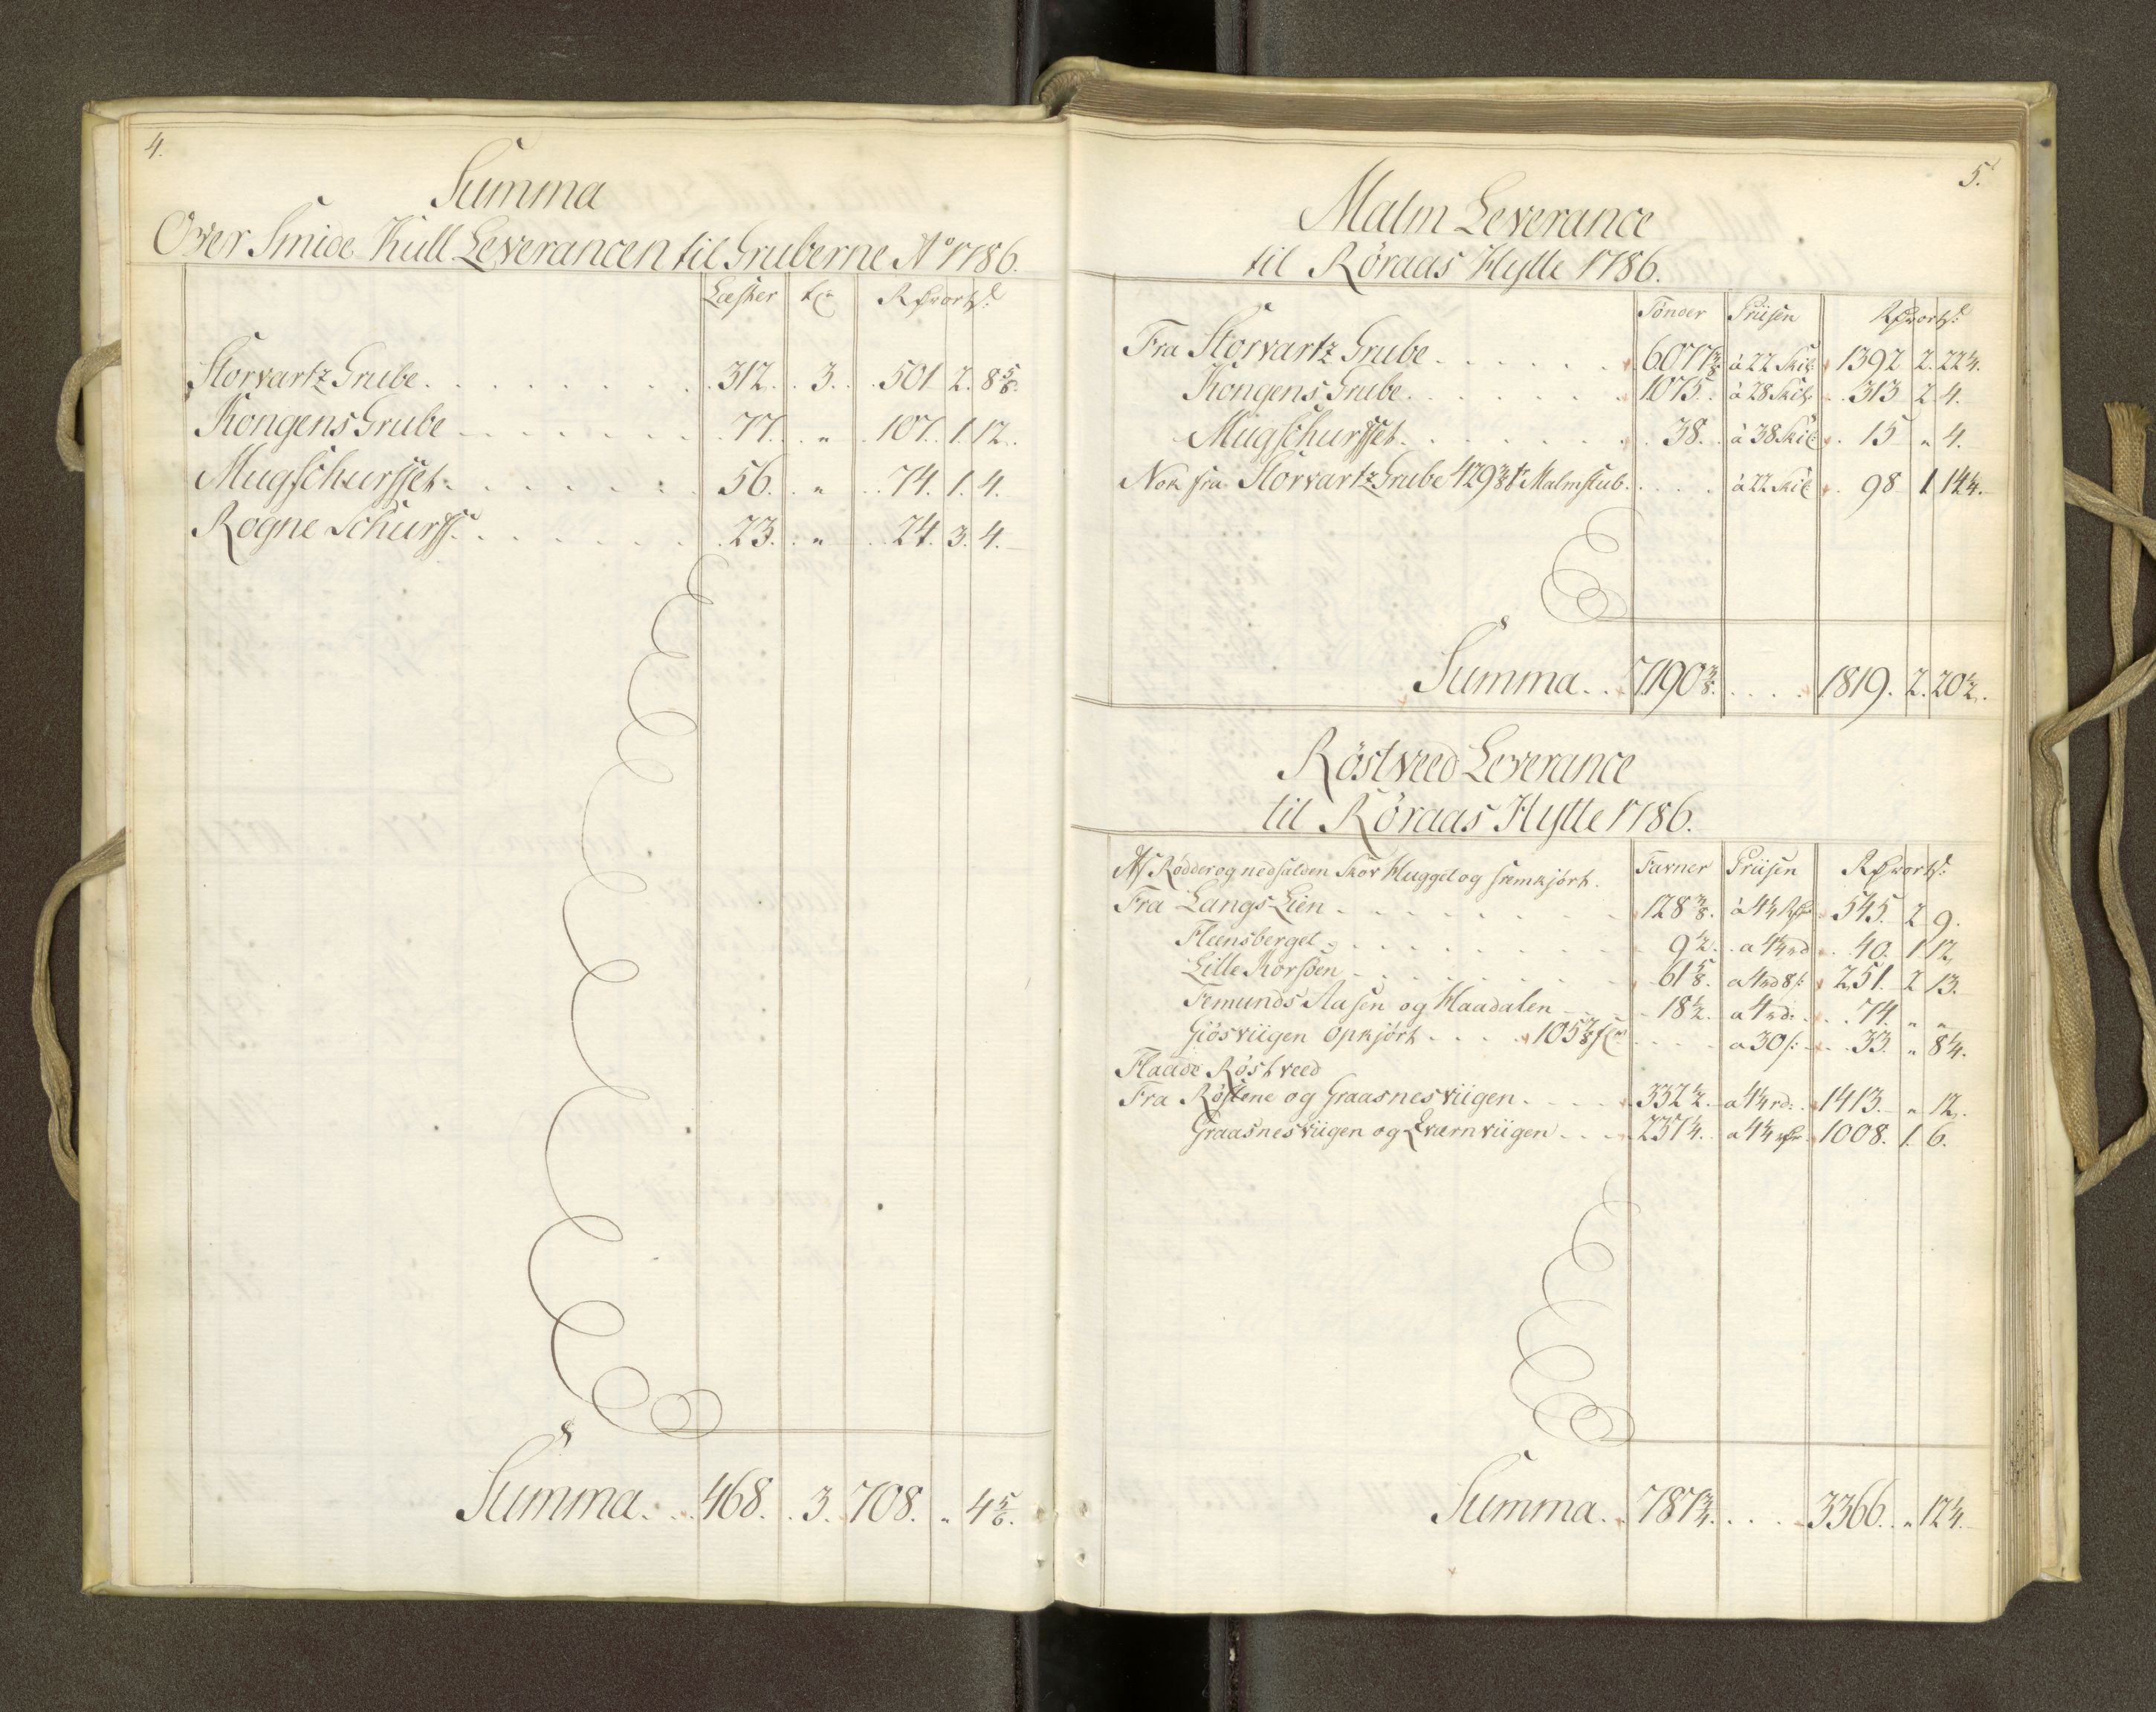 4.
Summa
Over Smide Kull Leverancen til Gruberne Aº 1786.
Læster tr Rdrort s:
Storvartz Grube. 312. 3. 501 2. 8 5/6.
Kongens Grube 77. " 107. 1. 12.
Mugschurffet. 56. " 74. 1. 4.
Rogne Schurff. 23. " 24. 3. 4.
Summa. 468. 3. 708. " 4 5/6.
5.
Malm Leverance
til Röraas Hytte 1786.
Tønder Priisen Rdrort s:
Fra Storvartz Grube 6077 3/8 à 22 Skil 1392 2. 22 1/4.
Kongens Grube. 1075. à 28 Skil 313 2. 4.
Mugschurffet. 38. à 38 Skil 15 " 4.
Nok fra Storvartz Grube 429 3/8 tr Malmstub. à 22 Skil 98 1 14 1/4.
Summa. 7190 3/8. 1819. 2. 20 1/2.
Röstveed Leverance
til Röraas Hytte 1786.
Af Rødder og nedfalden Skov Hugget og fremkjørt. Favner Priisen Rdrort s:
Fra Langs Lien 128 3/8. à 4 1/4 Rdr 545. 2 9.
Fleensberget 9 1/2. a 4 1/4 rd 40. 1 12.
Lille Korsöen 61 5/8. a 4 rd 8 s: 251. 2 13.
Femunds Aasen og Haadalen 18 1/2. a 4 rd: 74. " "
Giösviigen Opkjørt 105 7/8 f a 30 s: 33. " 8 1/4.
Flaade Röstveed
Fra Röstene og Graasnesviigen. 332 1/2. a 4 1/4 rd: 1413. " 12.
Graasnesviigen og Qvarnviigen 237 1/4. a 4 1/4 rdr 1008. 1. 6.
Summa. 787 3/4. 3366. " 12 1/4.